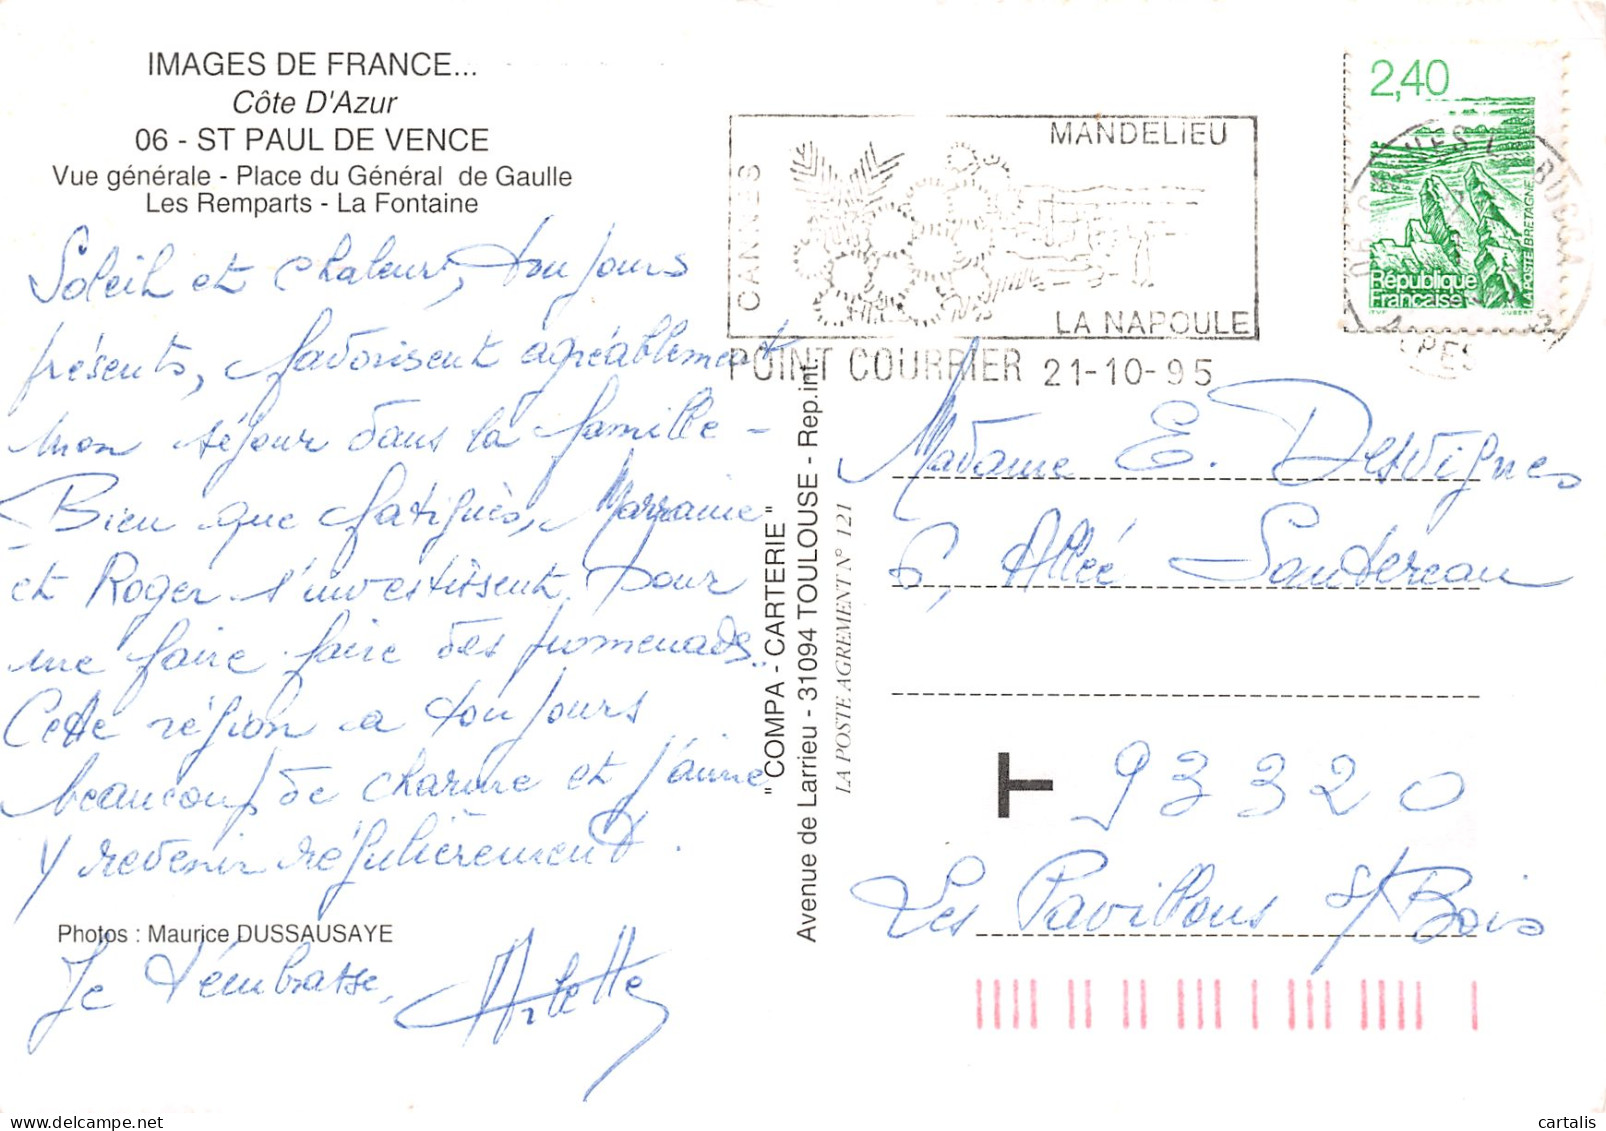 IMAGES DE FRANCE...
Côte D'Azur
06 - ST PAUL DE VENCE
Vue générale - Place du Général de Gaulle
Les Remparts - La Fontaine
Soleil et chaleur, toujours
présents, favorisent agréablement
mon séjour dans la famille -
Bien que fatigués, Marraine
et Roger s'investissent pour
me faire faire des promenades..
Cette région a toujours
beaucoup de charme et j'aime
y revenir régulièrement.
Photos : Maurice DUSSAUSAYE
Je t'embrasse,
Arlette
"COMPA - CARTERIE"
Avenue de Larrieu - 31094 TOULOUSE - Rep.int.
LA POSTE AGREMENT N° 121
CANNES
MANDELIEU
LA NAPOULE
POINT COURRIER 21-10-95
2,40
République
Française
LA POSTE BRETAGNE
JUBERT
06 CANNES LA BOCCA
ALPES
Madame E. Desvignes
6, Allée Sautereau
T 93320
Les Pavillons s/ Bois
cartalis